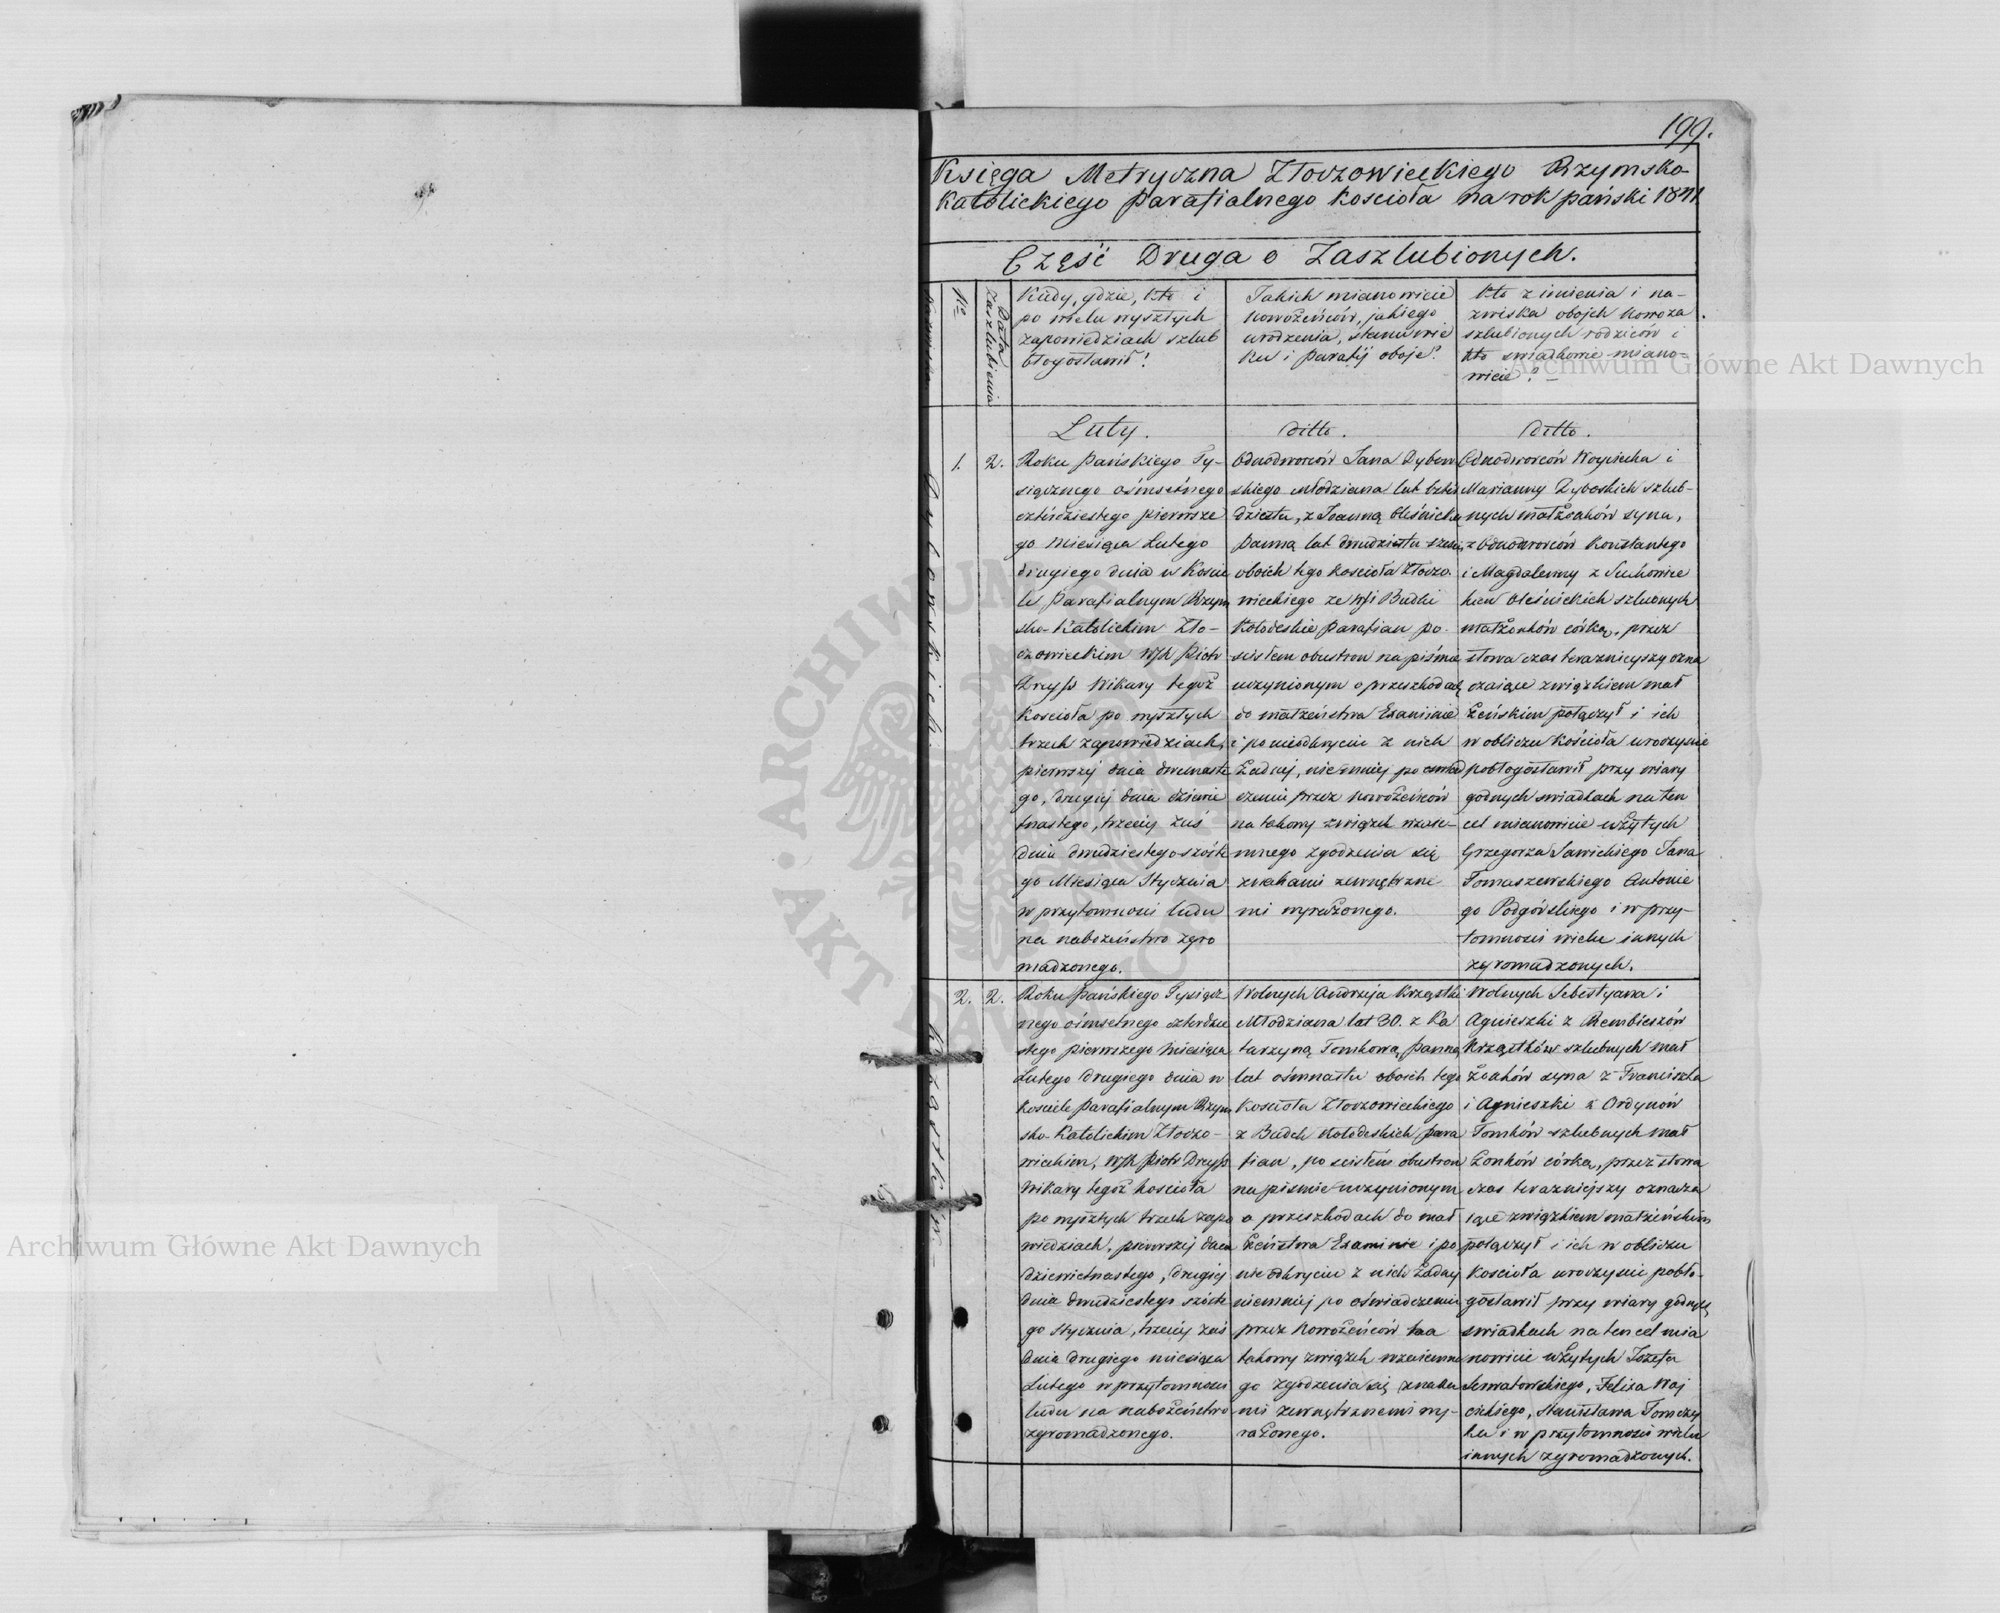 199.
Księga Metryczna Złoczowieckiego Rzymsko-
katolickiego parafialnego kościoła na rok pański 1841
Część Druga o Zaszlubionych.
Nro
Data
Zaszlubienia
Kiedy, gdzie, kto i
po wielu wyszłych
zapowiedziach szlub
błogosławił!
Jakich mianowicie
Nowożeńców, jakiego
urodzenia, stanu wie
ku i parafij oboje?
Kto z imienia i na-
zwiska obojch nowoza
szlubionych rodziców i
kto swiadkowie miano-
wicie? –
Luty.
ditto.
ditto.
1.
2.
Roku pańskiego Ty-
siącznego ośmsetnego
czterdziestego pierwsze
go Miesiąca Lutego
drugiego dnia w Koscie
le Parafialnym Rzym
sko-Katolickim Zło-
czowieckim Piotr
Dreyss Wikary tegoż
kościoła po wyszłych
trzech zapowiedziach,
pierwszej dnia dwunaste
go, drugiej dnia dziewie
tnastego, trzeciej zaś
dnia dwudziestego szóste
go Miesiąca Stycznia
w przytomności ludu
na nabożeństwo zgro
madzonego.
Odnodworców Jana Dybow
skiego młodziana lat
dziestu, z Joanną Oleśnicką
panną lat dwudziestu
oboich tego kościoła Złoczo.
wieckiego ze wsi Budki
Kołodeskie parafian po
scisłem obustron na piśmie
uczynionym o przeszkodach
do małżeństwa Examinie
i po nieodkryciu z nich
żadnej, nie mniej po oswiad
czeniu przez nowożeńców
na takowy związek wzaie-
mnego zgodzenia się
znakami zewnętrzne
mi wyrażonego.
Odnodworców Woyciecha i
Maryanny Dyboskich szlub-
nych małżonków syna,
z Odnodworców Konstantego
i Magdalenny z Suchowie
kich Oleśnickich szlubnych
małżonków córką, przez
słowa czas teraznieyszy ozna
czaiące związkiem mał
żeńskim połączył i ich
w obliczu kościoła uroczyscie
pobłogosławił przy wiary
godnych swiadkach na ten
cel mianowicie użytych
Grzegorza Sawickiego Jana
Tomaszewskiego Antonie
go Podgórskiego i w przy-
tomności wielu innych
zgromadzonych.
2.
2.
Roku pańskiego Tysiącz
nego ośmsetnego czterdzie
stego pierwszego Miesiąca
Lutego drugiego dnia w
kościele parafialnym Rzym
sko-Katolickim Złoczo-
wieckim, Piotr Dreyss
Wikary tegoż kościoła
po wyszłych trzech zapo
wiedziach, pierwszej dnia
dziewietnastego, drugiej
dnia dwudziestego szóste
go stycznia, trzeciej zaś
dnia drugiego miesiąca
Lutego w przytomności
ludu na nabożeństwo
zgromadzonego.
Wolnych Andrzeja Krząstki
Młodziana lat 30. z Ka
tarzyną Tomkową, panną
lat ośmnastu oboich tego
Kościoła Złoczowieckiego
z Budek Kołodeskich para
fian, po scisłem obustron
na piśmie uczynionym
o przeszkodach do mał
żeństwa Examinie i po
nieodkryciu z nich żadnej
niemniej po oświadczeniu
przez Nowożeńców na
takowy związek wzaiemne
go zgodzenia się znaka
mi zewnętrznemi wy-
rażonego.
Wolnych Sebestyana i
Agnieszki z Rembieszów
Krząstków szlubnych mał
żonków syna z Franciszka
i Agnieszki z Ordynów
Tomków szlubnych mał
żonków córką, przez słowa
czas terazniejszy oznacza
iące związkiem małżeńskim
połączył i ich w obliczu
Kościoła uroczyscie pobło-
gosławił przy wiary godnych
swiadkach na ten cel mia
nowicie użytych Jozefa
Serwatowskiego, Felixa Woj
cickiego, Stanisława Tomczy
ka i w przytomności wielu
innych zgromadzonych.
ARCHIWUM
AKT DAWNYCH
Archiwum Główne Akt Dawnych
Archiwum Główne Akt Dawnych